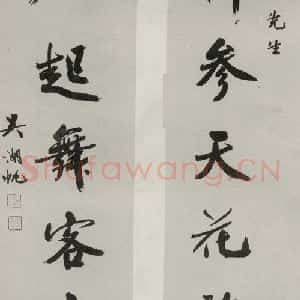 先生
参天花
起舞客
吴湖帆
Shufawang.CN